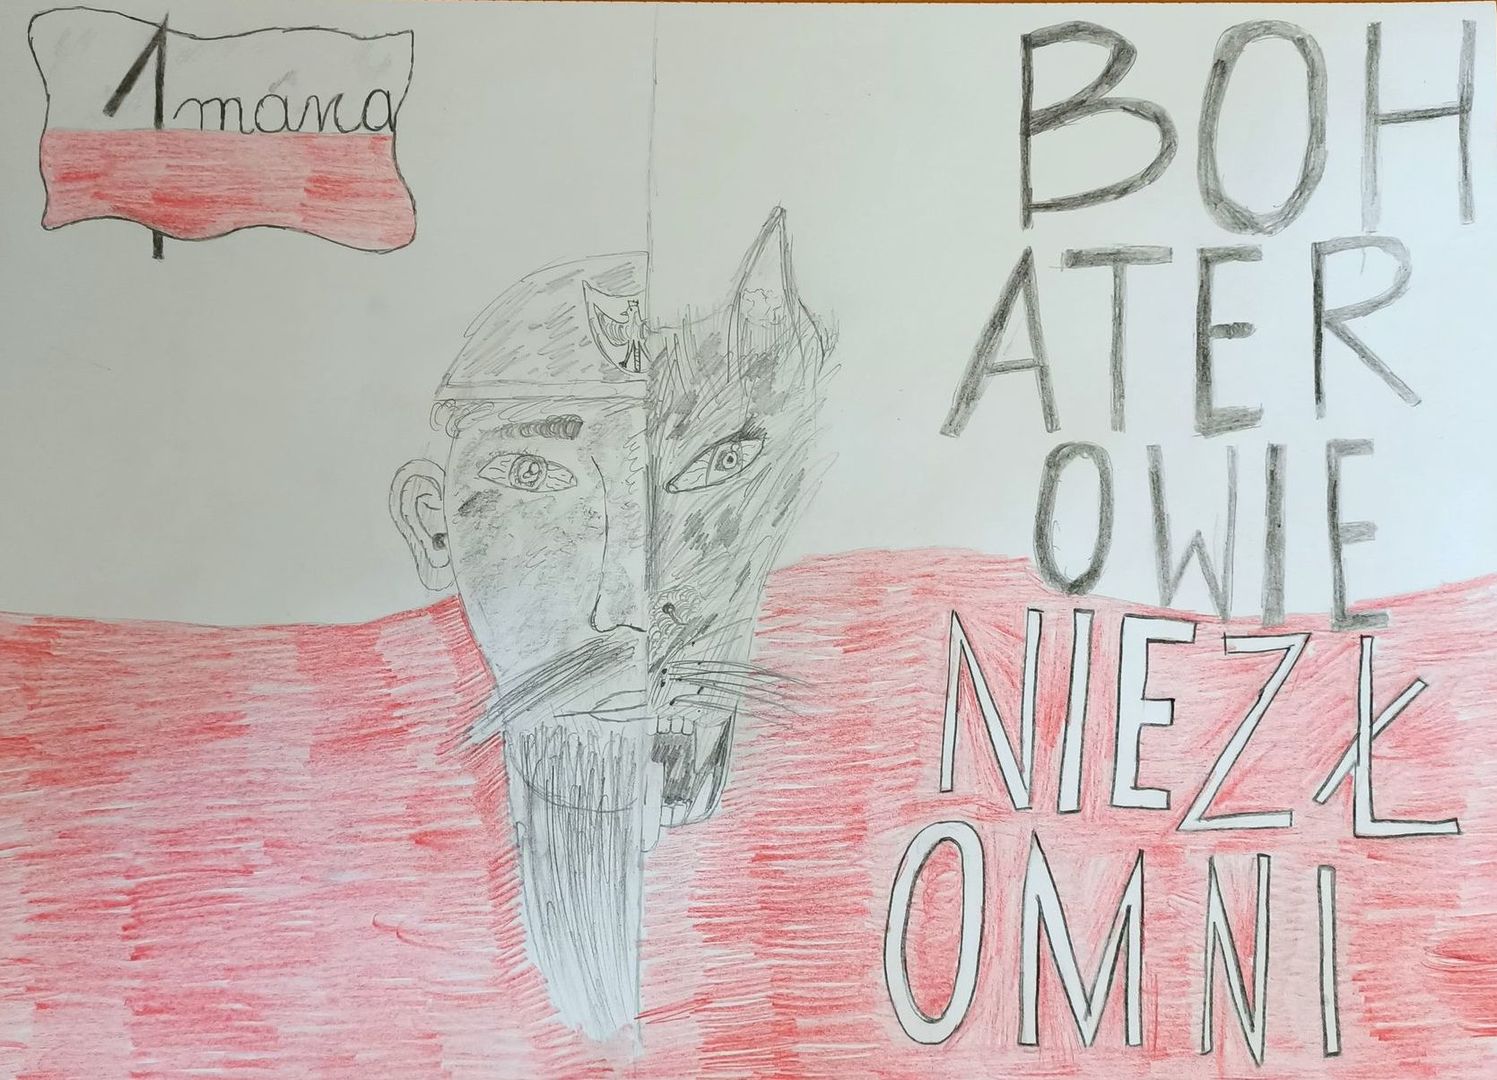 1 marca
BOH
ATER
OWIE
NIEZŁ
OMNI